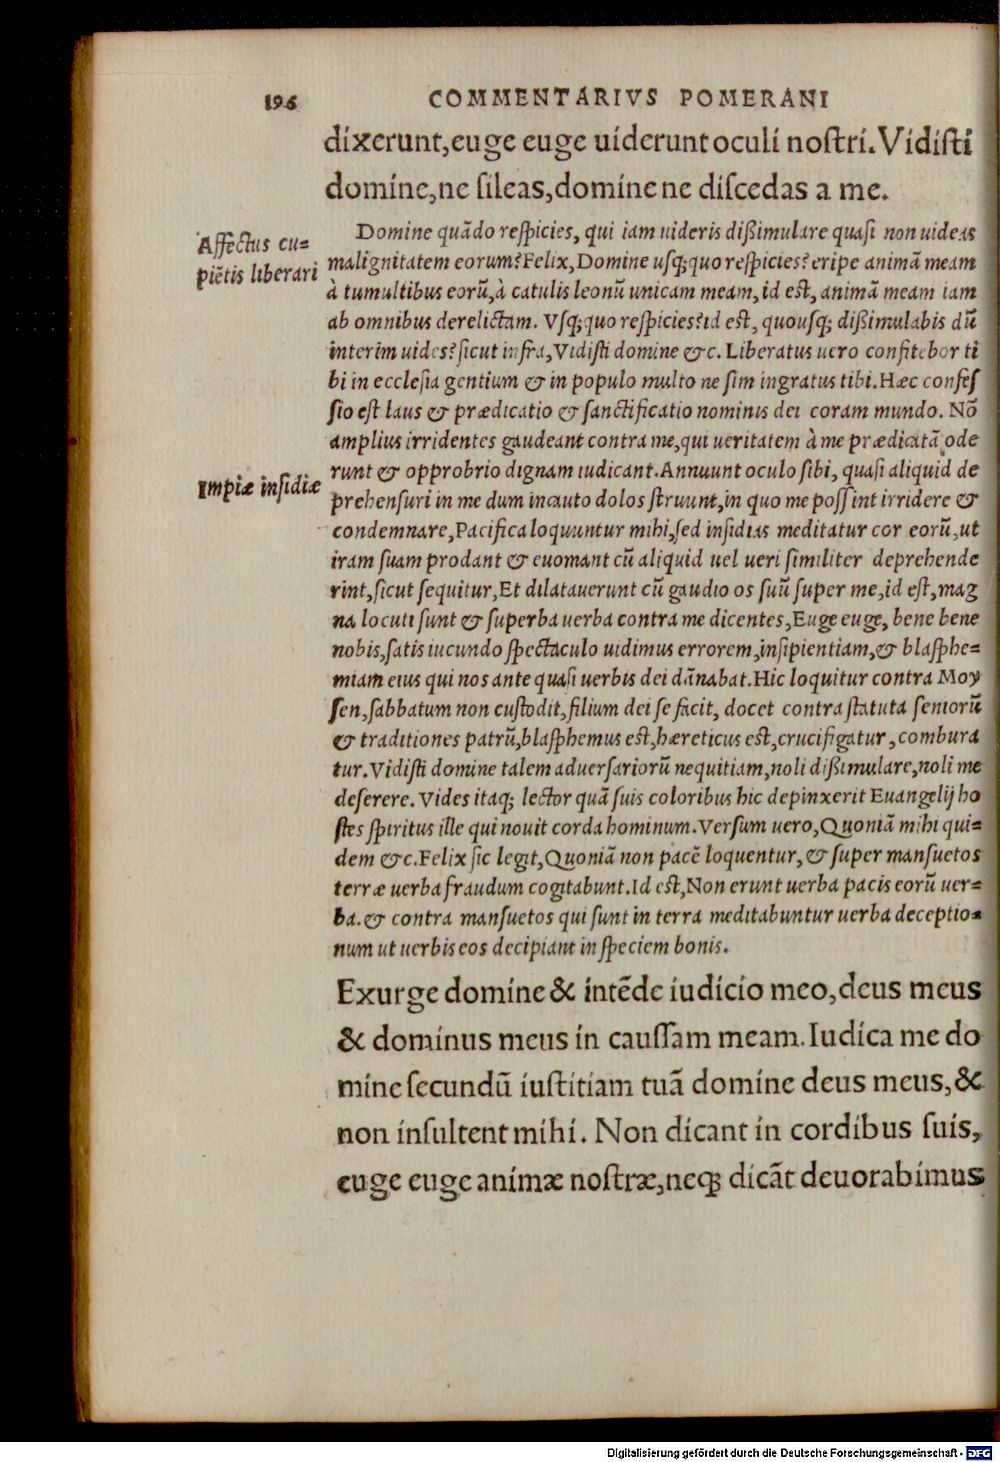 196 COMMENTARIVS POMERANI
dixerunt, euge euge uiderunt oculi nostri. Vidisti
domine, ne sileas, domine ne discedas a me.
Affectus cu=
piẽtis liberari
Domine quãdo respicies, qui iam uideris dißimulare quasi non uideas
malignitatem eorum? Felix, Domine usq; quo respicies? eripe animã meam
à tumultibus eorũ, à catulis leonũ unicam meam, id est, animã meam iam
ab omnibus derelictam. Vsq; quo respicies? id est, quousq; dißimulabis dũ
interim uides? sicut infra, Vidisti domine &c. Liberatus uero confitebor ti
bi in ecclesia gentium & in populo multo ne sim ingratus tibi. Hæc confes
sio est laus & prædicatio & sanctificatio nominis dei coram mundo. Nõ
amplius irridentes gaudeant contra me, qui ueritatem à me prædicatã ode
runt & opprobrio dignam iudicant. Annuunt oculo sibi, quasi aliquid de
Impiæ insidiæ
prehensuri in me dum incauto dolos struunt, in quo me possint irridere &
condemnare, Pacifica loquuntur mihi, sed insidias meditatur cor eorũ, ut
iram suam prodant & euomant cũ aliquid uel ueri similiter deprehende
rint, sicut sequitur, Et dilatauerunt cũ gaudio os suũ super me, id est, mag
na locuti sunt & superba uerba contra me dicentes, Euge euge, bene bene
nobis, satis iucundo spectaculo uidimus errorem, insipientiam, & blasphe=
miam eius qui nos ante quasi uerbis dei dãnabat. Hic loquitur contra Moy
sen, sabbatum non custodit, filium dei se facit, docet contra statuta seniorũ
& traditiones patrũ, blasphemus est, hæreticus est, crucifigatur, combura
tur. Vidisti domine talem aduersariorũ nequitiam, noli dißimulare, noli me
deserere. Vides itaq; lector quã suis coloribus hic depinxerit Euangelij ho
stes spiritus ille qui nouit corda hominum. Versum uero, Quoniã mihi qui=
dem &c. Felix sic legit, Quoniã non pacẽ loquentur, & super mansuetos
terræ uerba fraudum cogitabunt. Id est, Non erunt uerba pacis eorũ uer=
ba. & contra mansuetos qui sunt in terra meditabuntur uerba deceptio=
num ut uerbis eos decipiant in speciem bonis.
Exurge domine & intẽde iudicio meo, deus meus
& dominus meus in caussam meam. Iudica me do
mine secundũ iustitiam tuã domine deus meus, &
non insultent mihi. Non dicant in cordibus suis,
euge euge animæ nostræ, neq; dicãt deuorabimus
Digitalisierung gefördert durch die Deutsche Forschungsgemeinschaft - DFG